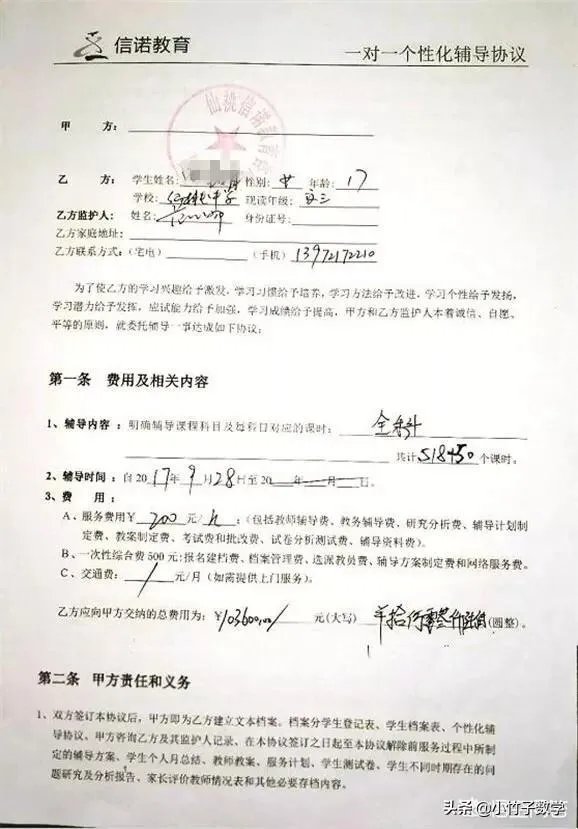 信诺教育
一对一个性化辅导协议
仙桃信诺教育
甲 方:
乙 方: 学生姓名: 性别: 女 年龄: 17
学校: 中学 现读年级: 高三
乙方监护人: 姓名: 身份证号:
乙方家庭地址:
乙方联系方式:(宅电) (手机) 13972172210
为了使乙方的学习兴趣给予激发,学习习惯给予培养,学习方法给予改进,学习个性给予发扬,
学习潜力给予发挥,应试能力给予加强,学习成绩给予提高,甲方和乙方监护人本着诚信、自愿、
平等的原则,就委托辅导一事达成如下协议:
第一条 费用及相关内容
1、辅导内容:明确辅导课程科目及每科目对应的课时: 全科
共计 518+50 个课时。
2、辅导时间:自2017年9月28日至20 年 月 日。
3、费 用:
A、服务费用¥ 200 元/h;(包括教师辅导费、教务辅导费、研究分析费、辅导计划制
定费、教案制定费、考试费和批改费、试卷分析测试费、辅导资料费)。
B、一次性综合费500元:报名建档费、档案管理费、选派教员费、辅导方案制定费和网络服务费。
C、交通费: / 元/月(如需提供上门服务)。
乙方应向甲方交纳的总费用为:¥103600.00/ 元(大写) (圆整)。
第二条 甲方责任和义务
1、双方签订本协议后,甲方即为乙方建立文本档案。档案分学生登记表、学生档案表、个性化辅
导协议、甲方咨询乙方及其监护人记录、在本协议签订之日起至本协议解除前服务过程中所制
定的辅导方案、学生个人月总结、教师教案、服务计划、学生测试卷、学生不同时期存在的问
题研究及分析报告、家长评价教师情况表和其他必要存档内容。
头条@小竹子数学